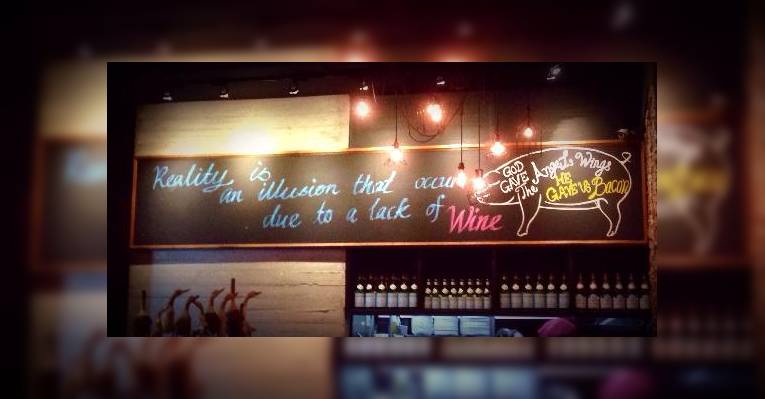 Reality is
an illusion that occur
due to a lack of Wine
GOD Angels Wings
GAVE
The HE
GAVE US Bacon